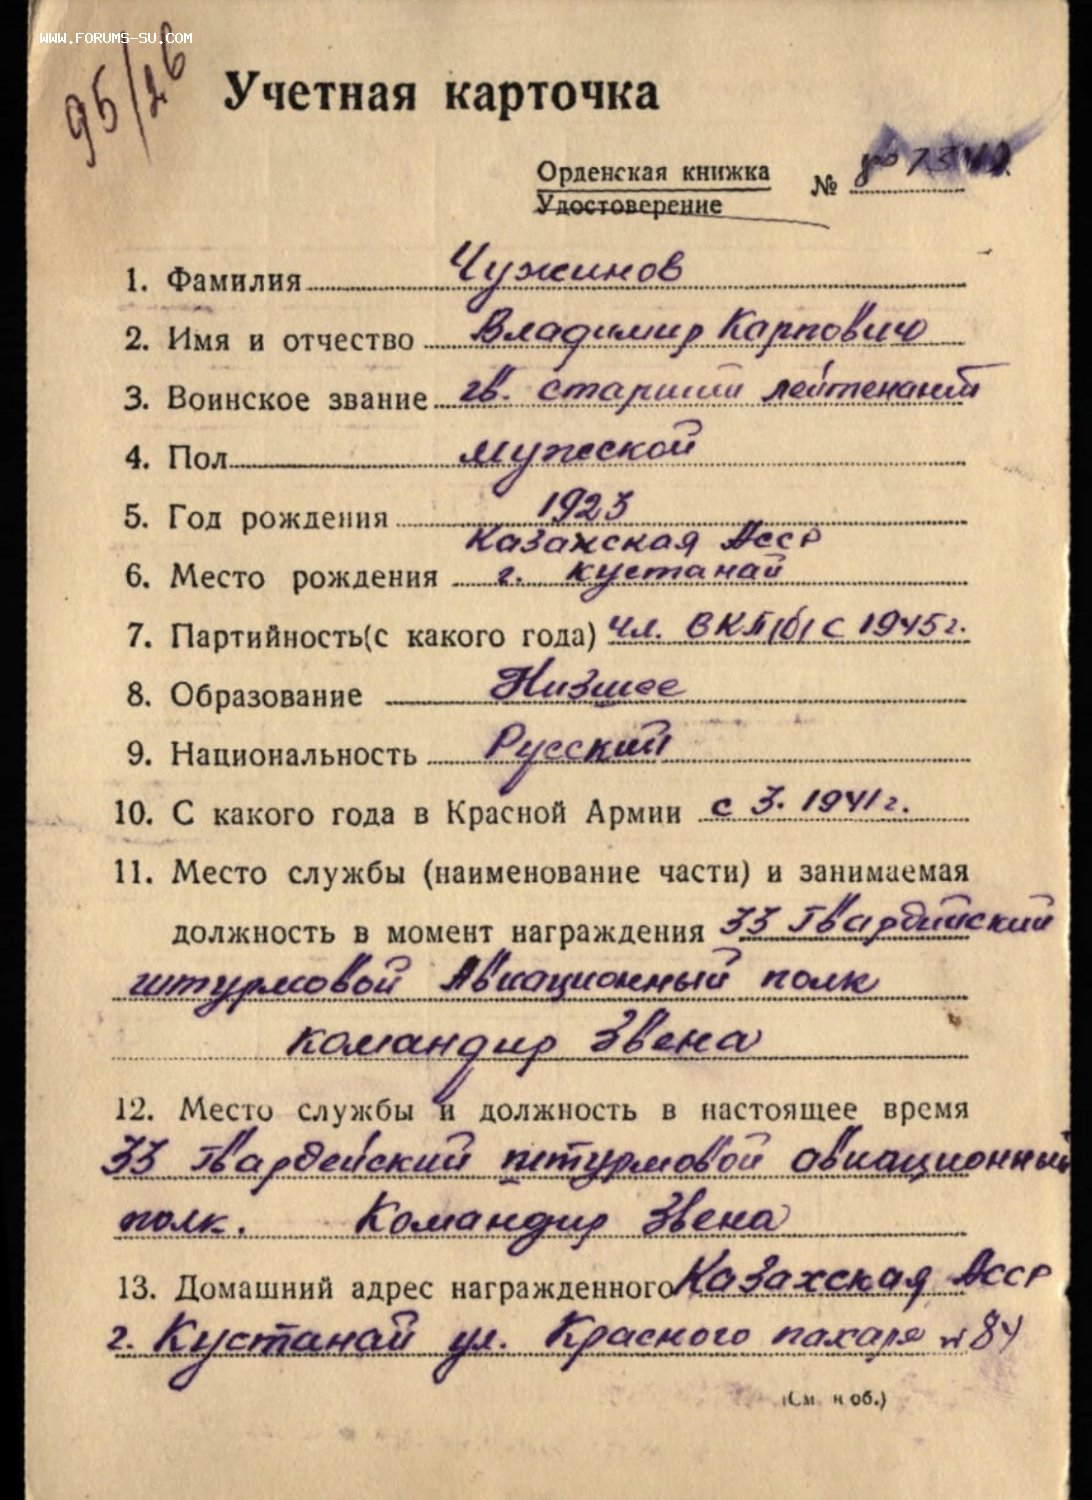 www.forums-su.com
95/26
Учетная карточка
Орденская книжка
Удостоверение
№
1. Фамилия Чужинов
2. Имя и отчество Владимир Карпович
3. Воинское звание гв. старший лейтенант
4. Пол мужской
5. Год рождения 1923
Казахская АССР
6. Место рождения г. Кустанай
7. Партийность(с какого года) Чл. ВКП/б/ с 1945 г.
8. Образование Низшее
9. Национальность Русский
10. С какого года в Красной Армии с 3. 1941 г.
11. Место службы (наименование части) и занимаемая
должность в момент награждения 33 Гвардейский
штурмовой Авиационный полк
командир Звена
12. Место службы и должность в настоящее время
33 Гвардейский штурмовой авиационный
полк. Командир Звена
13. Домашний адрес награжденного Казахская АССР
г. Кустанай ул. Красного пахаря № 84
(См. н об.)